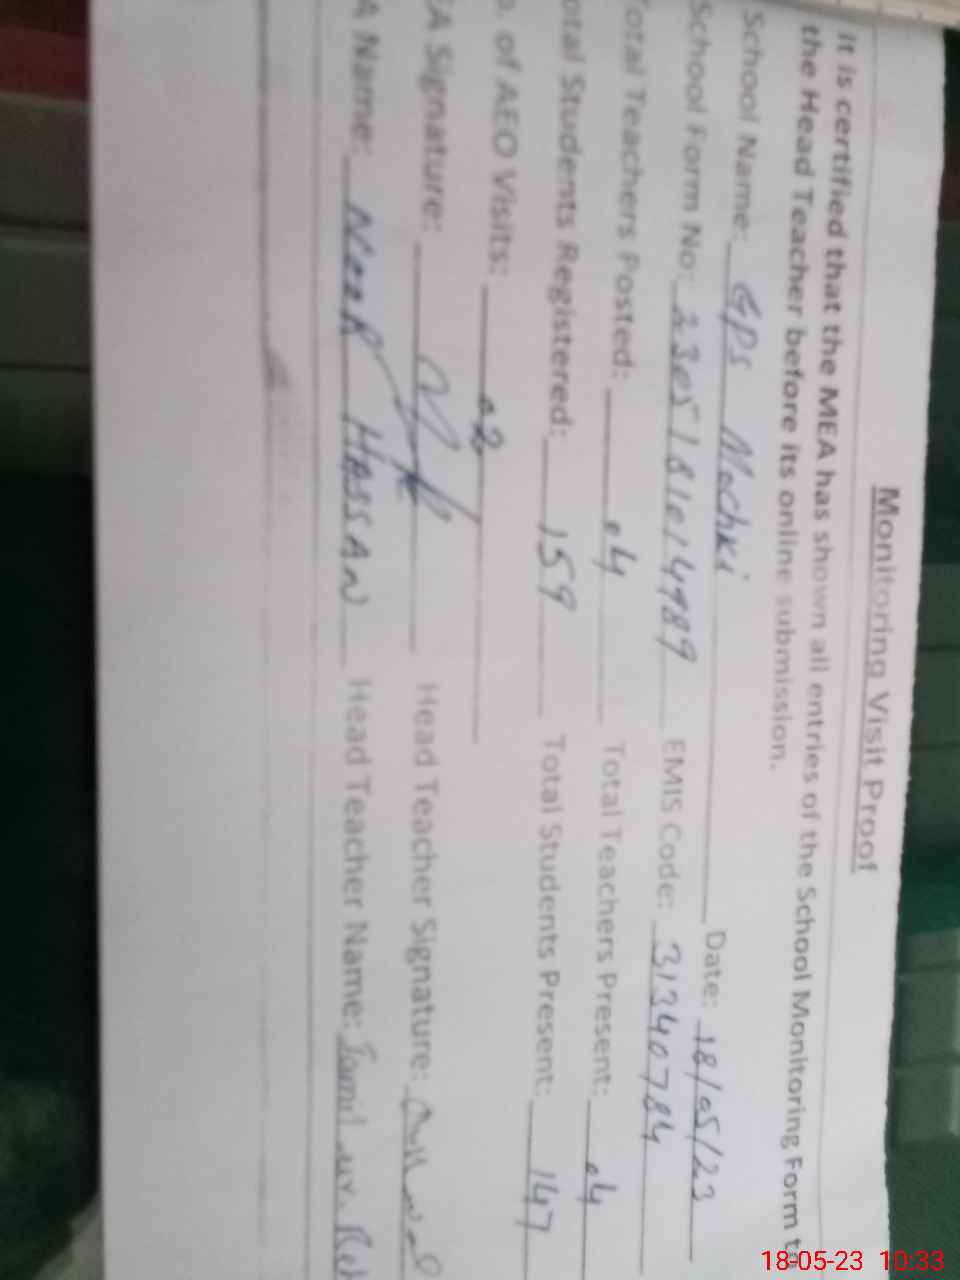 Monitoring Visit Proof
It is certified that the MEA has shown all entries of the School Monitoring Form to
the Head Teacher before its online submission.
School Name: GPS Mochki Date: 18/05/23
School Form No: 2305181014989 EMIS Code: 31340784
Total Teachers Posted: 04 Total Teachers Present: 04
otal Students Registered: 159 Total Students Present: 147
o. of AEO Visits: 02
EA Signature: Head Teacher Signature:
A Name: HASSAN Head Teacher Name: Jamil ur. Reh
18-05-23 10:33